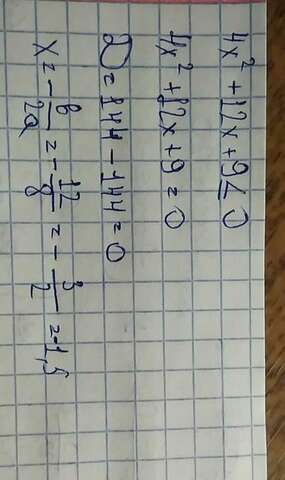 4x² + 12x + 9 ≤ 0
4x² + 12x + 9 = 0
D = 144 - 144 = 0
x = - b/2a = - 12/8 = - 3/2 = -1,5